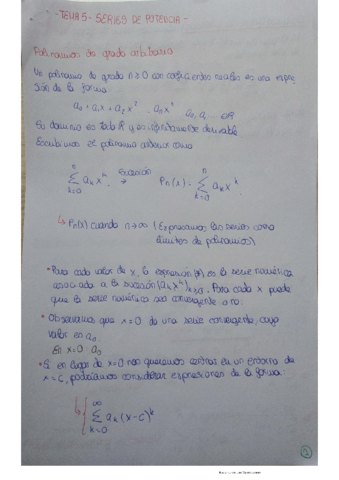 - TEMA 5 - SERIES DE POTENCIA -
Polinomios de grado arbitrario
Un polinomio de grado n≥0 con coeficientes reales es una expre-
sión de la forma:
a₀ + a₁x + a₂x² ... aₙxⁿ   a₀, a₁ ... ∈ℝ
Su dominio es todo ℝ y es infinitamente derivable.
Escribimos el polinomio anterior como
∑ₖ₌₀ⁿ aₖxᵏ   sucesión →   Pₙ(x) = ∑ₖ₌₀ⁿ aₖxᵏ
↳ Pₙ(x) cuando n→∞ (Expresamos las series como
límites de polinomios)
• Para cada valor de x, la expresión (*) es la serie numérica
asociada a la sucesión (aₖxᵏ)ₖ≥₀. Para cada x puede
que la serie numérica sea convergente o no.
• Observamos que x=0 da una serie convergente, cuyo
valor es a₀
En x=0 a₀
• Si en lugar de x=0 nos queremos centrar en un entorno de
x=c, podríamos considerar expresiones de la forma:
↳ { ∑ₖ₌₀^∞ aₖ(x-c)ᵏ